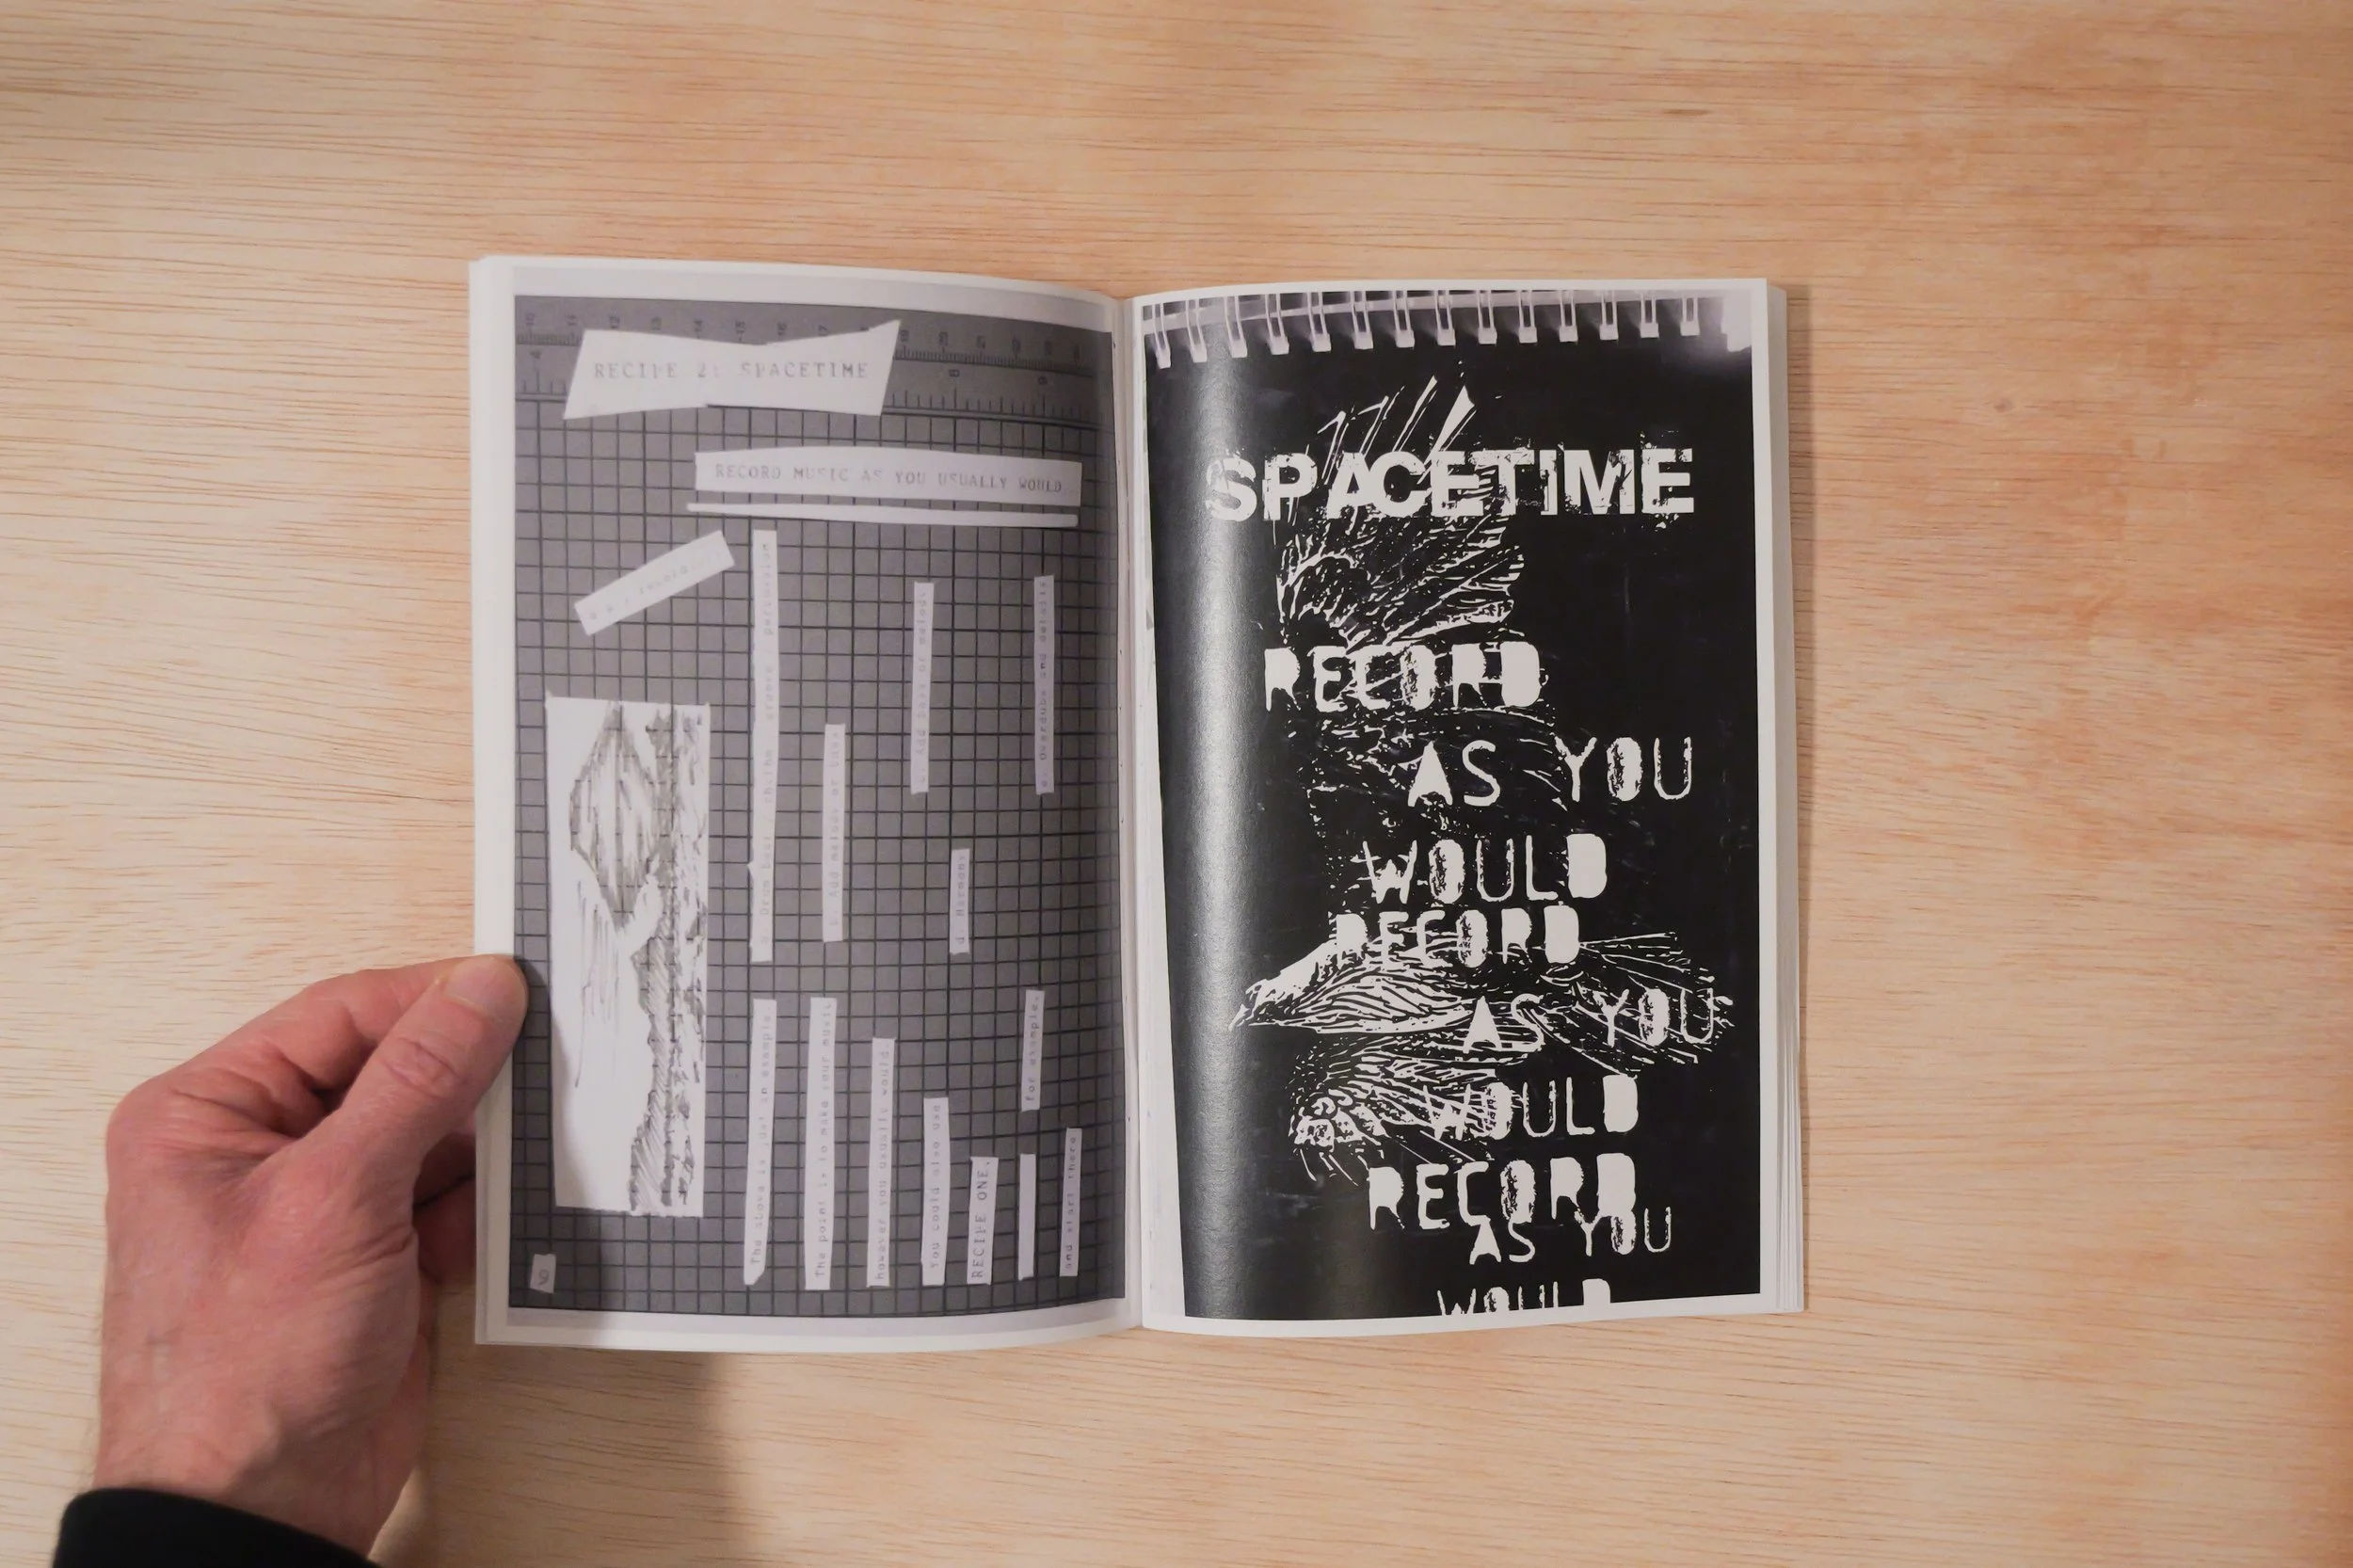 RECIPE 2: SPACETIME
RECORD MUSIC AS YOU USUALLY WOULD
record
Drum beat / rhythm percussion
Add melody or bass
Add bass or melody
d. Harmony
e. Overdubs and details
The above is just an example.
The point is to make your music
however you usually would.
You could also use
RECIPE ONE,
for example,
and start there
SPACETIME
RECORD
AS YOU
WOULD
RECORD
AS YOU
WOULD
RECORD
AS YOU
WOULD